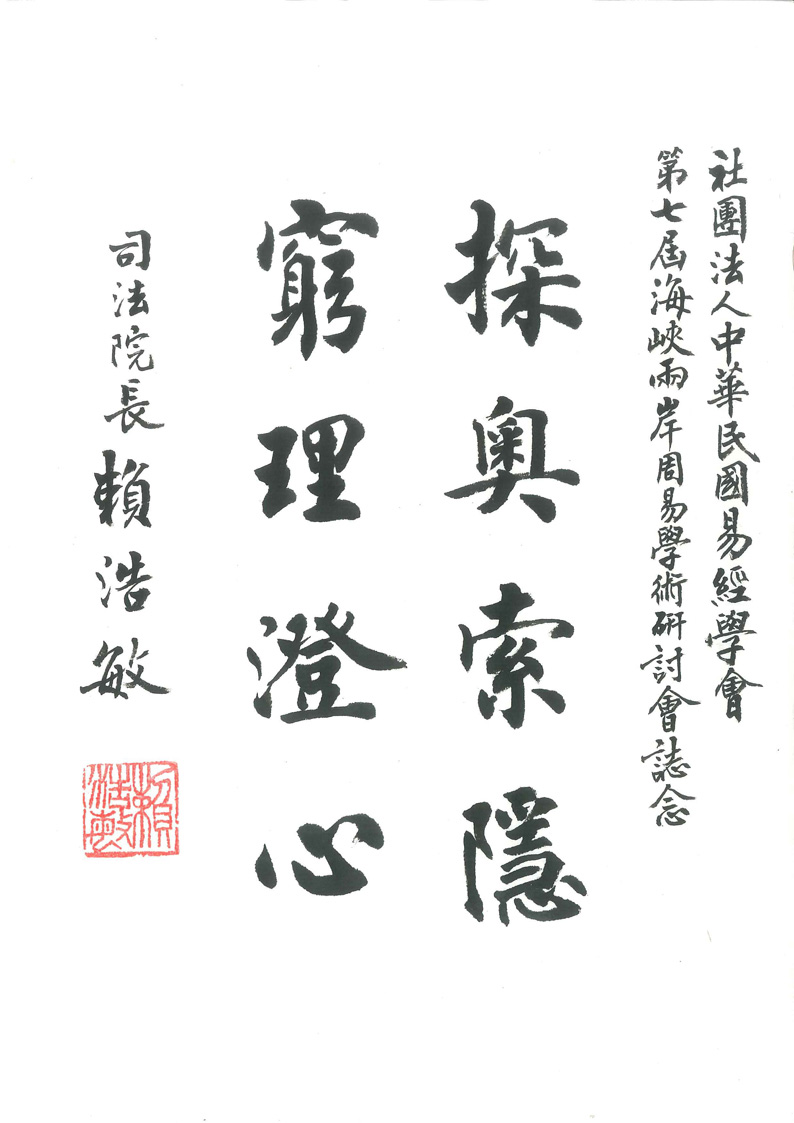 社團法人中華民國易經學會
第七屆海峽兩岸周易學術研討會誌念
探奧索隱
窮理澄心
司法院長賴浩敏
賴浩敏